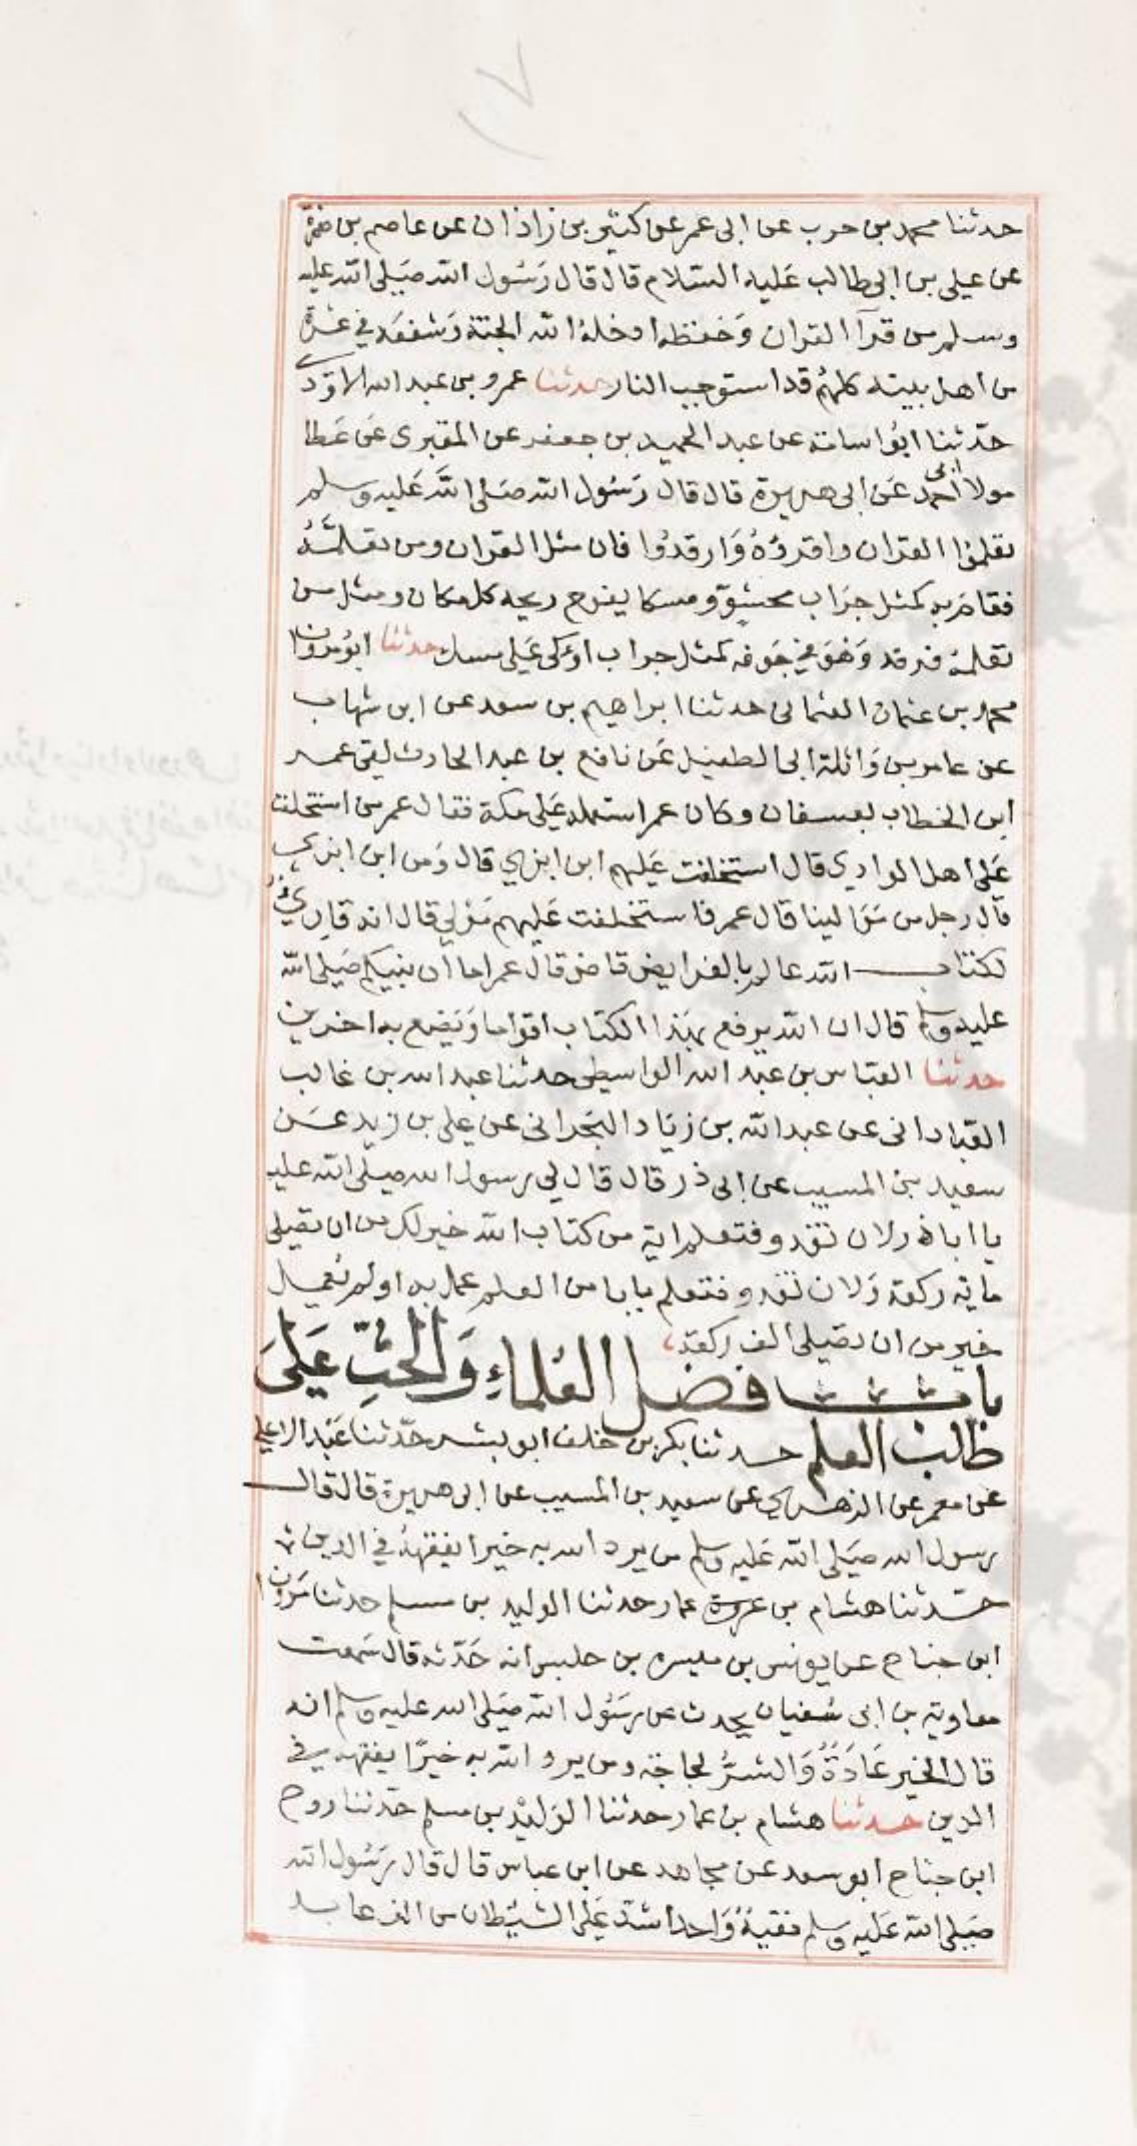 حدثنا محمد بن حرب عن ابى عمر عن كثير بن زاذان عن عاصم بن ضمرة
عن على بن ابى طالب عَليه السّلام قال قال رَسُول الله صَلى الله عليه
وسلم من قرآ القران وَحفظه ادخلهُ الله الجنّة وَشفعَه في عشرة
من اهل بيته كلهُم قد استوجب النار حدثنا عمرو بن عبد الله الاوَدى
حدّثنا ابُو اسامة عن عبد الحميد بن جعفر عن المقبرى عَن عَطا
مولا ابى احمد عَن ابى هريرة قال قال رَسُول الله صَلى الله عَليه وسلم
تعَلموُا القران واقروُهُ وَارقدُوا فان مثل القران ومن تعَلمَّهُ
فقامَ به كمثل جرَاب محشوّ ومسكا يفوح ريحه كل مكان ومثل من
تعَلمهُ فرقد وَهوَ في جَوفه كمثل جراب اوُكى عَلى مسك حدثنا ابوُ مروان
محمد بن عثمان العثمانى حدثنا ابراهيم بن سعد عن ابن شهاب
عن عامر بن وَاثلة ابى الطفيل عَن نافع بن عبد الحارث لقى عمر
ابن الخطاب بعسفان وكان عمر استعمله عَلى مكة فقال عمر من استخلفت
عَلى اهل الوادي قال استخلفت عَليهم ابن ابزي قال وَمن ابن ابزي
قال رجل من مَوَالينا قال عمر فاستخلفت عَليهم مَوْلي قال انه قارئ
لكتاب الله عالم بالفرايض قاض قال عمر اما ان نبيكم صَلى الله
عليه وسلم قال ان الله يرفع بهَذا الكتاب اقواما وَيَضع به اخرين
حدثنا العبّاس بن عبد الله الواسطى حدثنا عبد الله بن غالب
العَبادانى عن عبد الله بن زيَاد البَحرانى عن على بن زيد عَن
سعيد بن المسيب عن ابى ذر قال قال لي رسول الله صلى الله عليه
يا اباذر لان تغدو فتعلم اية من كتاب الله خير لك من ان تصَلى
ماية ركعة وَلان تغدو فتعلم بابا من العلم عمل به او لم يُعمل
خير من ان تصَلى الف ركعة
باب فضل العُلماءِ وَالحثِّ عَلىَ
طَلب العلم حدثنا بكر بن خلف ابو بشر حدّثنا عَبد الاعلى
عن معمر عن الزهري عن سعيد بن المسيب عن ابى هريرة قال قال
رسول الله صَلى الله عَليه وسلم من يرد الله به خيرا يفقههُ في الدين
حدّثنا هشام بن عروة عمار حدثنا الوليد بن مسلم حدثنا مَروان
ابن جناح عن يونس بن ميسره بن حلبس انه حَدّثه قال سَمعت
معاوية بن ابى سُفيان يحدث عن رسَوُل الله صَلى الله عليه وسلم انه
قال الخير عَادَةٌ وَالشرُّ لجاجة ومن يرد الله به خيرًا يفقهه في
الدين حدثنا هشام بن عمار حدثنا الوَليدْ بن مسلم حدّثنا روح
ابن جناح ابو سعد عن مجاهد عن ابن عباس قال قال رسَوُل الله
صَلى الله عَليه وسلم فقيهٌ وَاحد اشدّ عَلى الشيْطان من الف عابد